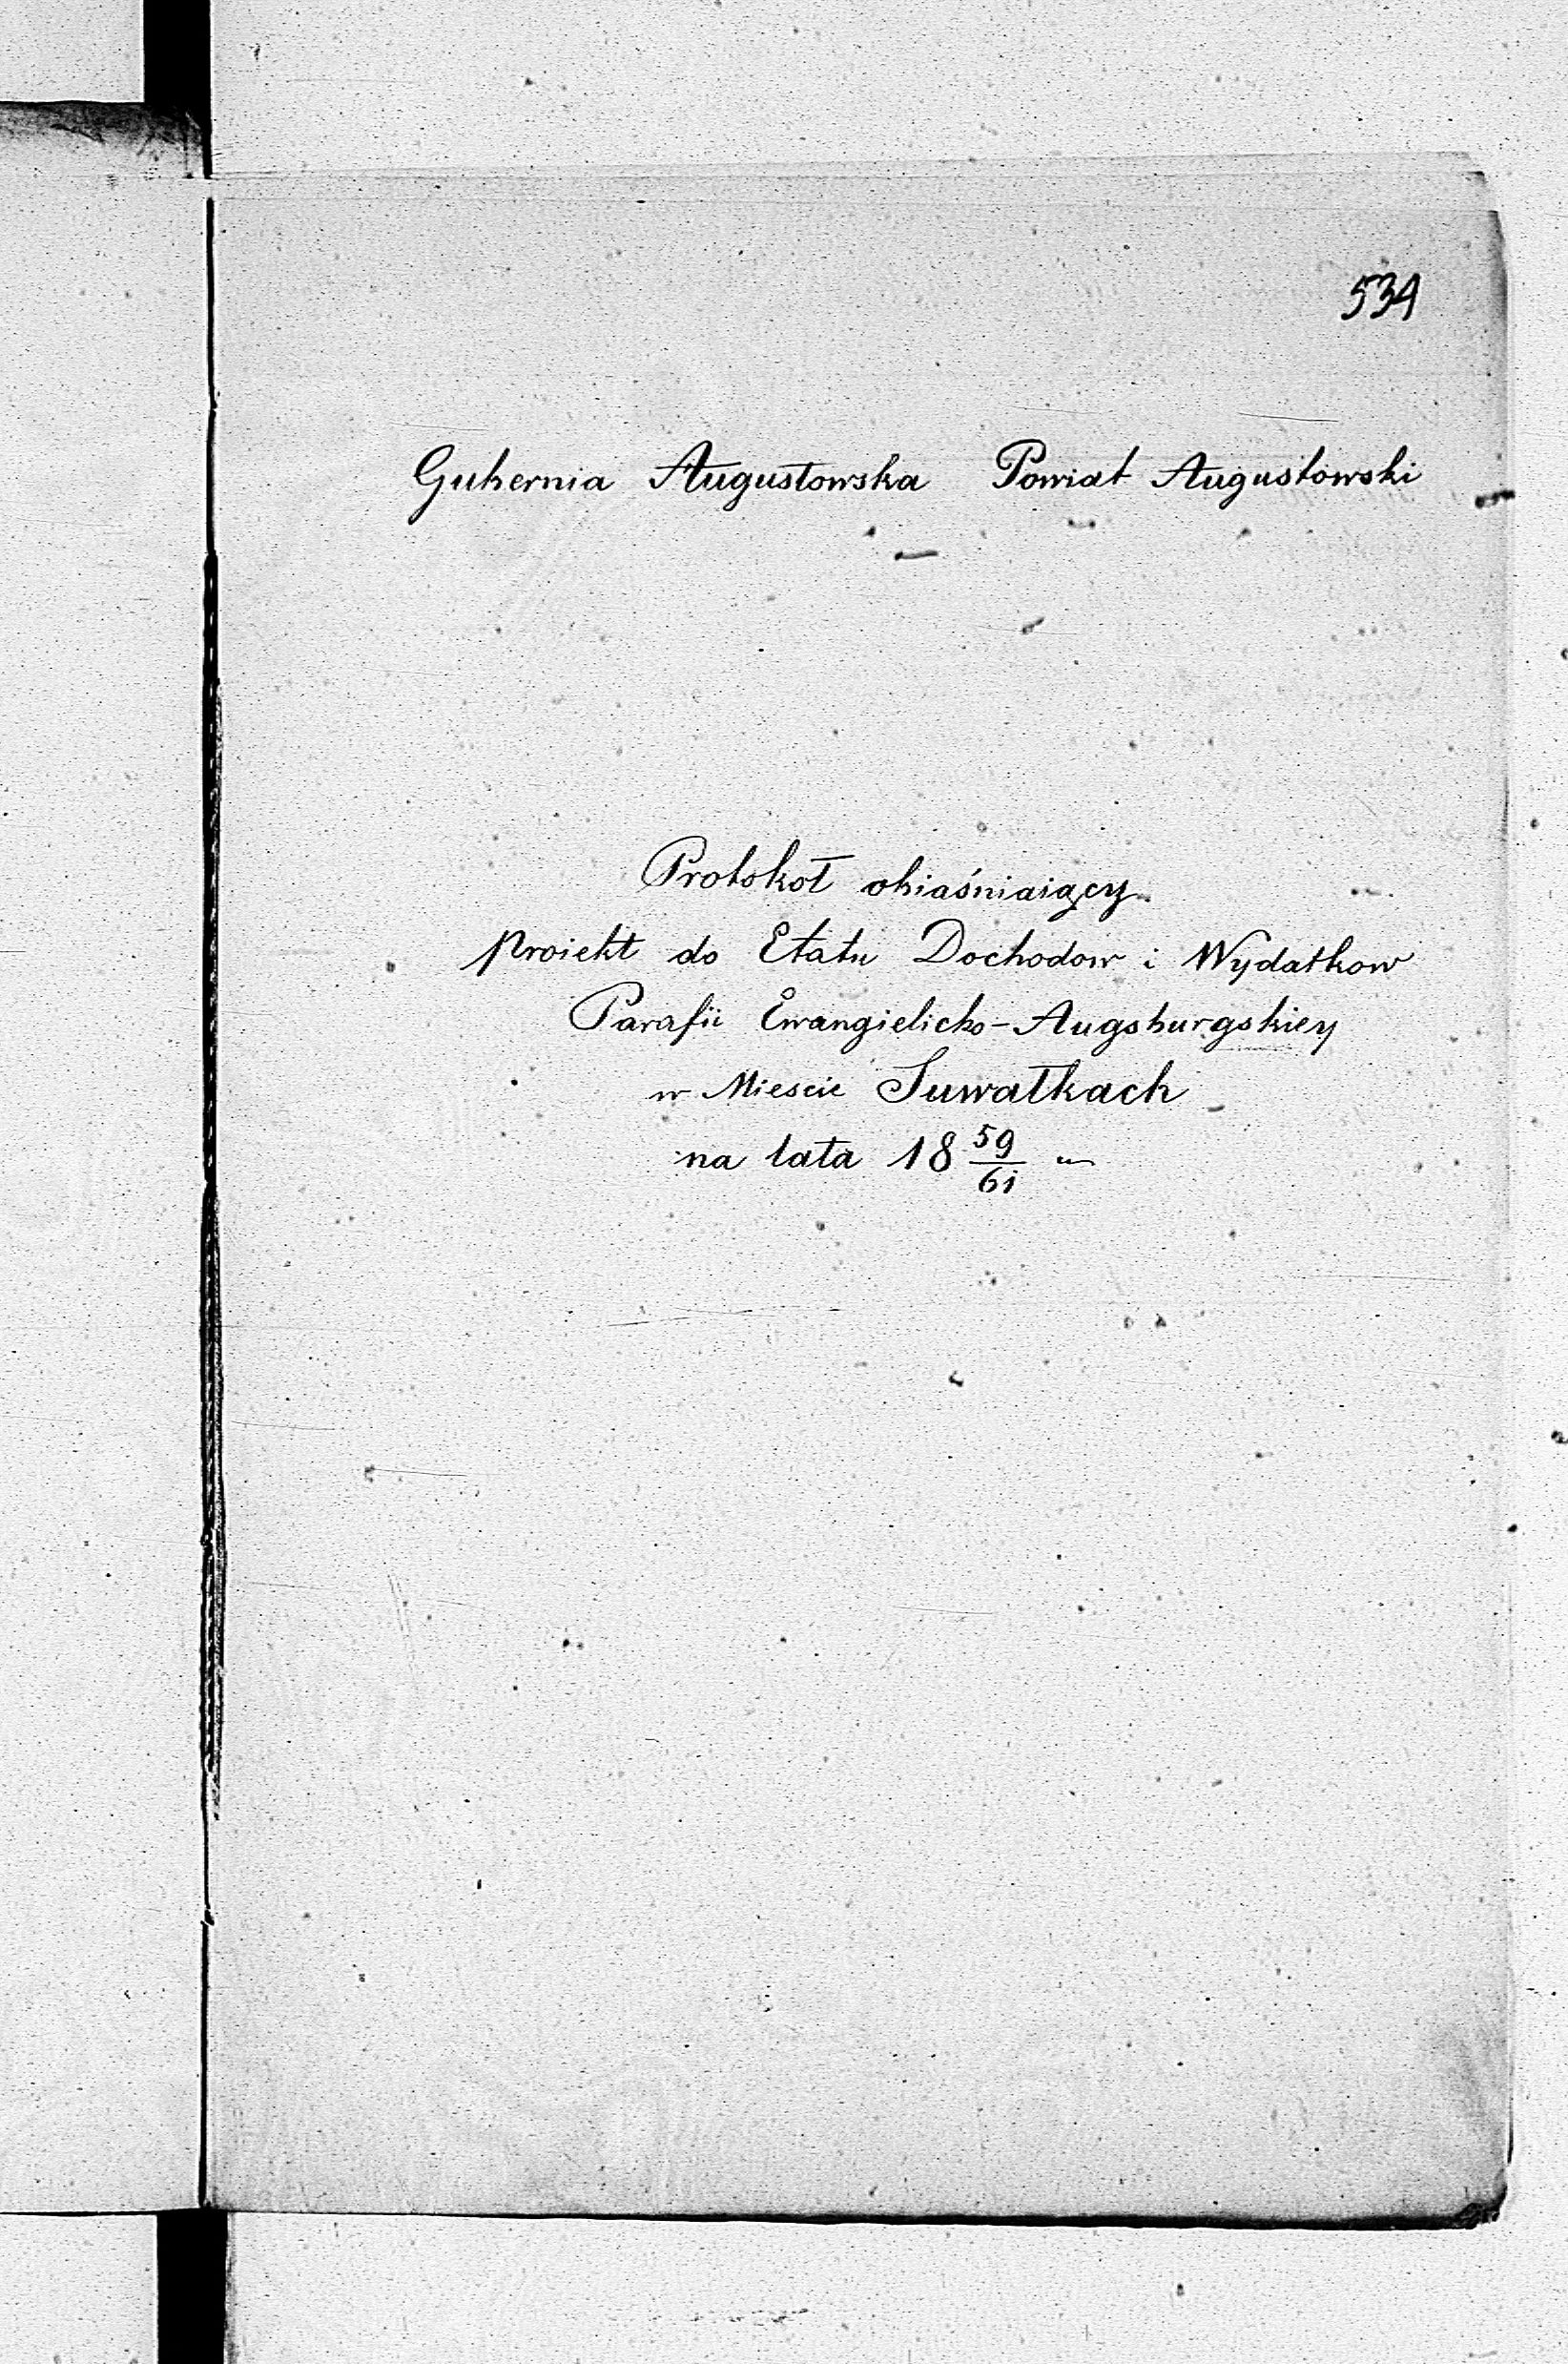 534
Gubernia Augustowska Powiat Augustowski
Protokoł obiaśniaiący
Proiekt do Etatu Dochodow i Wydatkow
Parafii Ewangielicko-Augsburgskiey
w Miescie Suwałkach
na lata 18 59/61